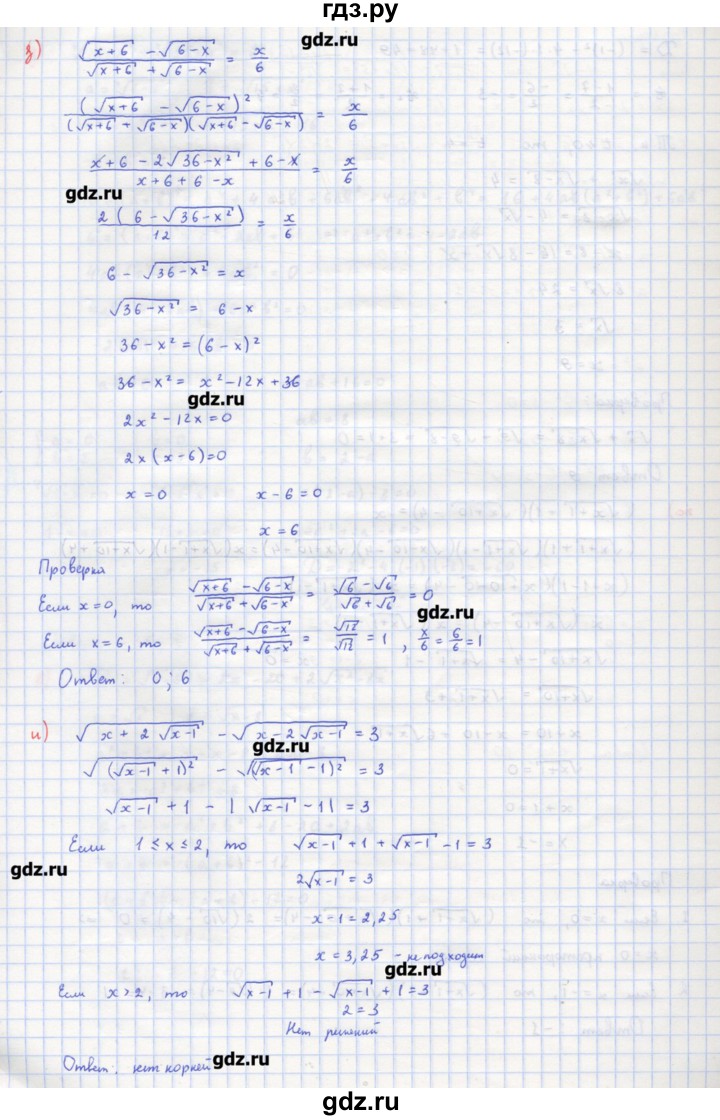 гдз.ру
з) (√(x+6) − √(6−x)) / (√(x+6) + √(6−x)) = x/6
gdz.ru
(√(x+6) − √(6−x))² / ((√(x+6) + √(6−x))(√(x+6) − √(6−x))) = x/6
(x+6 − 2√(36−x²) + 6−x) / (x+6+6−x) = x/6
gdz.ru
2(6 − √(36−x²)) / 12 = x/6
6 − √(36−x²) = x
√(36−x²) = 6−x
36−x² = (6−x)²
36−x² = x²−12x+36
gdz.ru
2x²−12x=0
2x(x−6)=0
x=0 x−6=0
x=6
Проверка
Если x=0, то (√(x+6) − √(6−x)) / (√(x+6) + √(6−x)) = (√6 − √6) / (√6 + √6) = 0
gdz.ru
Если x=6, то (√(x+6) − √(6−x)) / (√(x+6) + √(6−x)) = √12 / √12 = 1, x/6 = 6/6 = 1
Ответ: 0; 6
и) √(x+2√(x−1)) − √(x−2√(x−1)) = 3
gdz.ru
√((√(x−1)+1)²) − √((√(x−1)−1)²) = 3
√(x−1) + 1 − |√(x−1) − 1| = 3
Если 1≤x≤2, то √(x−1) + 1 + √(x−1) − 1 = 3
gdz.ru
2√(x−1) = 3
x−1=2,25
x=3,25 − не подходит
gdz.ru
Если x>2, то √(x−1) + 1 − √(x−1) + 1 = 3
2=3
Нет решений
Ответ: нет корней
gdz.ru
гдз.ру